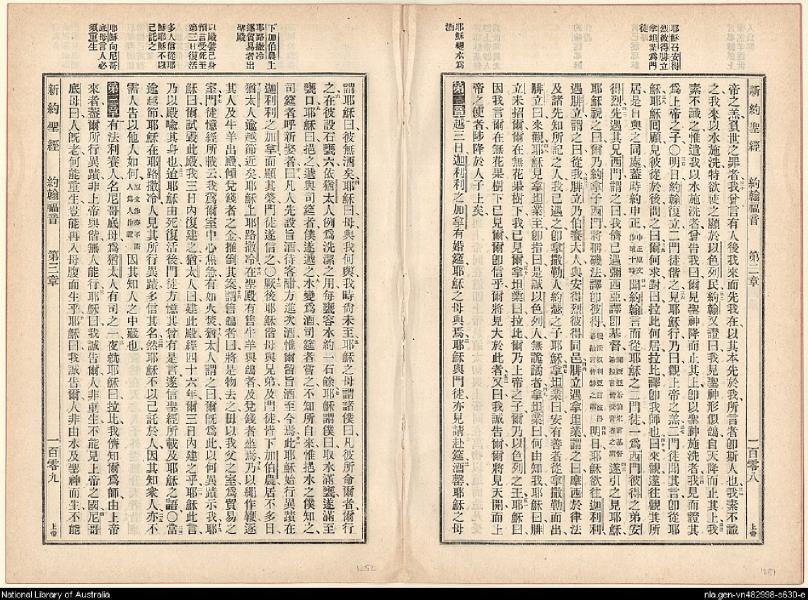 新約聖經 約翰福音 第二章 一百零八 上帝
耶穌召安得
烈彼得腓立
拿坦業為門
徒
耶穌變水為
酒
帝之羔負世之罪者我曾言有人後我來而先我在以其本先於我所言者卽斯人也我素不識
之我來以水施洗特欲使之顯於以色列民約翰又證曰我見聖神形似鴿自天降而止其上我
素不識之惟遣我以水施洗者曾告我曰爾見聖神降而止其上卽以聖神施洗者我見而證其
為上帝之子〇明日約翰復立二門徒偕之見耶穌行乃曰觀上帝之羔二門徒聞其言卽從耶
穌耶穌回顧見彼從於後問之曰爾何求對曰拉比何居拉比譯卽我師也曰來觀遂往觀其所
居是日與之同處蓋時約申正
聞約翰言而從耶穌之二門徒一為西門彼得之弟安
得烈先遇其兄西門謂之曰我儕已遇彌西亞譯卽基督
遂引之見耶穌
耶穌視之曰爾乃約拿子西門將稱磯法譯卽彼得
明日耶穌欲往迦利利
遇腓立謂之曰從我腓立乃伯賽大人與安得烈彼得同邑腓立遇拿坦業謂之曰摩西於律法
及諸先知所記之人我已遇之卽拿撒勒人約瑟之子耶穌拿坦業曰安有善者從拿撒勒而出
腓立曰來觀耶穌見拿坦業至卽指曰是誠以色列人無詭譎者拿坦業曰何由知我耶穌曰腓
立未招爾爾在無花果樹下我已見爾拿坦業曰拉比爾乃上帝之子爾乃以色列之王耶穌曰
因我言爾在無花果樹下已見爾爾卽信乎爾將見大於此者又曰我誠告爾爾將見天開而上
帝之使者陟降於人子上矣
第二章 越三日迦利利之加拿有婚筵耶穌之母與焉耶穌與門徒亦見請赴筵酒罄耶穌之母
下加伯農上
耶路撒冷
逐貿易者出
聖殿
以殿譬己身
預言受死至
第三日復活
多人信從耶
穌耶穌不以
己託之
耶穌向尼哥
底母言人必
須重生
謂耶穌曰彼無酒矣耶穌曰母與我何與我時尚未至耶穌之母謂諸僕曰凡彼所命爾者爾行
之在彼設石甕六依猶太人例為洗潔之用每甕容水約一石餘耶穌謂僕曰取水滿甕遂滿至
甕口耶穌曰挹之遺與司筵者僕遂遺之水變為酒司筵者嘗之不知所自來惟挹水之僕知之
司筵者呼新娶者曰凡人先設旨酒待客酣方進次酒惟爾留旨酒至今焉此耶穌始行異蹟在
迦利利之加拿而顯其榮門徒遂信之〇厥後耶穌偕母與兄弟及門徒皆下加伯農居不多日
猶太人逾越節近矣耶穌上耶路撒冷在聖殿有售牛羊與鴿者及兌錢者坐焉乃以繩作鞭逐
其人及牛羊出殿傾兌錢者之金推倒其案謂售鴿者曰將是物去之毋以我父之室為貿易之
室門徒憶經所載云我為爾室中心焦急有如火焚猶太人謂之曰爾旣為此以何異蹟示我耶
穌曰爾試毀此殿我三日內復建之猶太人曰建此殿經四十六年爾三日內建之乎耶穌此言
乃以殿喻其身也迨耶穌由死復活後門徒方憶其曾有是言遂信聖經所載及耶穌之語〇當
逾越節耶穌在耶路撒冷人見其所行異蹟多信其名然耶穌不以己託於人因其知衆人亦不
需人告以他人如何
因其知人之中藏也
第三章 有法利賽人名尼哥底母為猶太人有司之一夜就耶穌曰拉比我儕知爾為師由上帝
來者蓋爾所行異蹟非上帝與偕無人能行耶穌曰我誠告爾人非重生不能見上帝之國尼哥
底母曰人旣老何能重生豈能再入母腹而生乎耶穌曰我誠告爾人非由水及聖神而生不能
新約聖經 約翰福音 第三章 一百零九 上帝
1252
1251
National Library of Australia
nla.gen-vn482998-s630-e